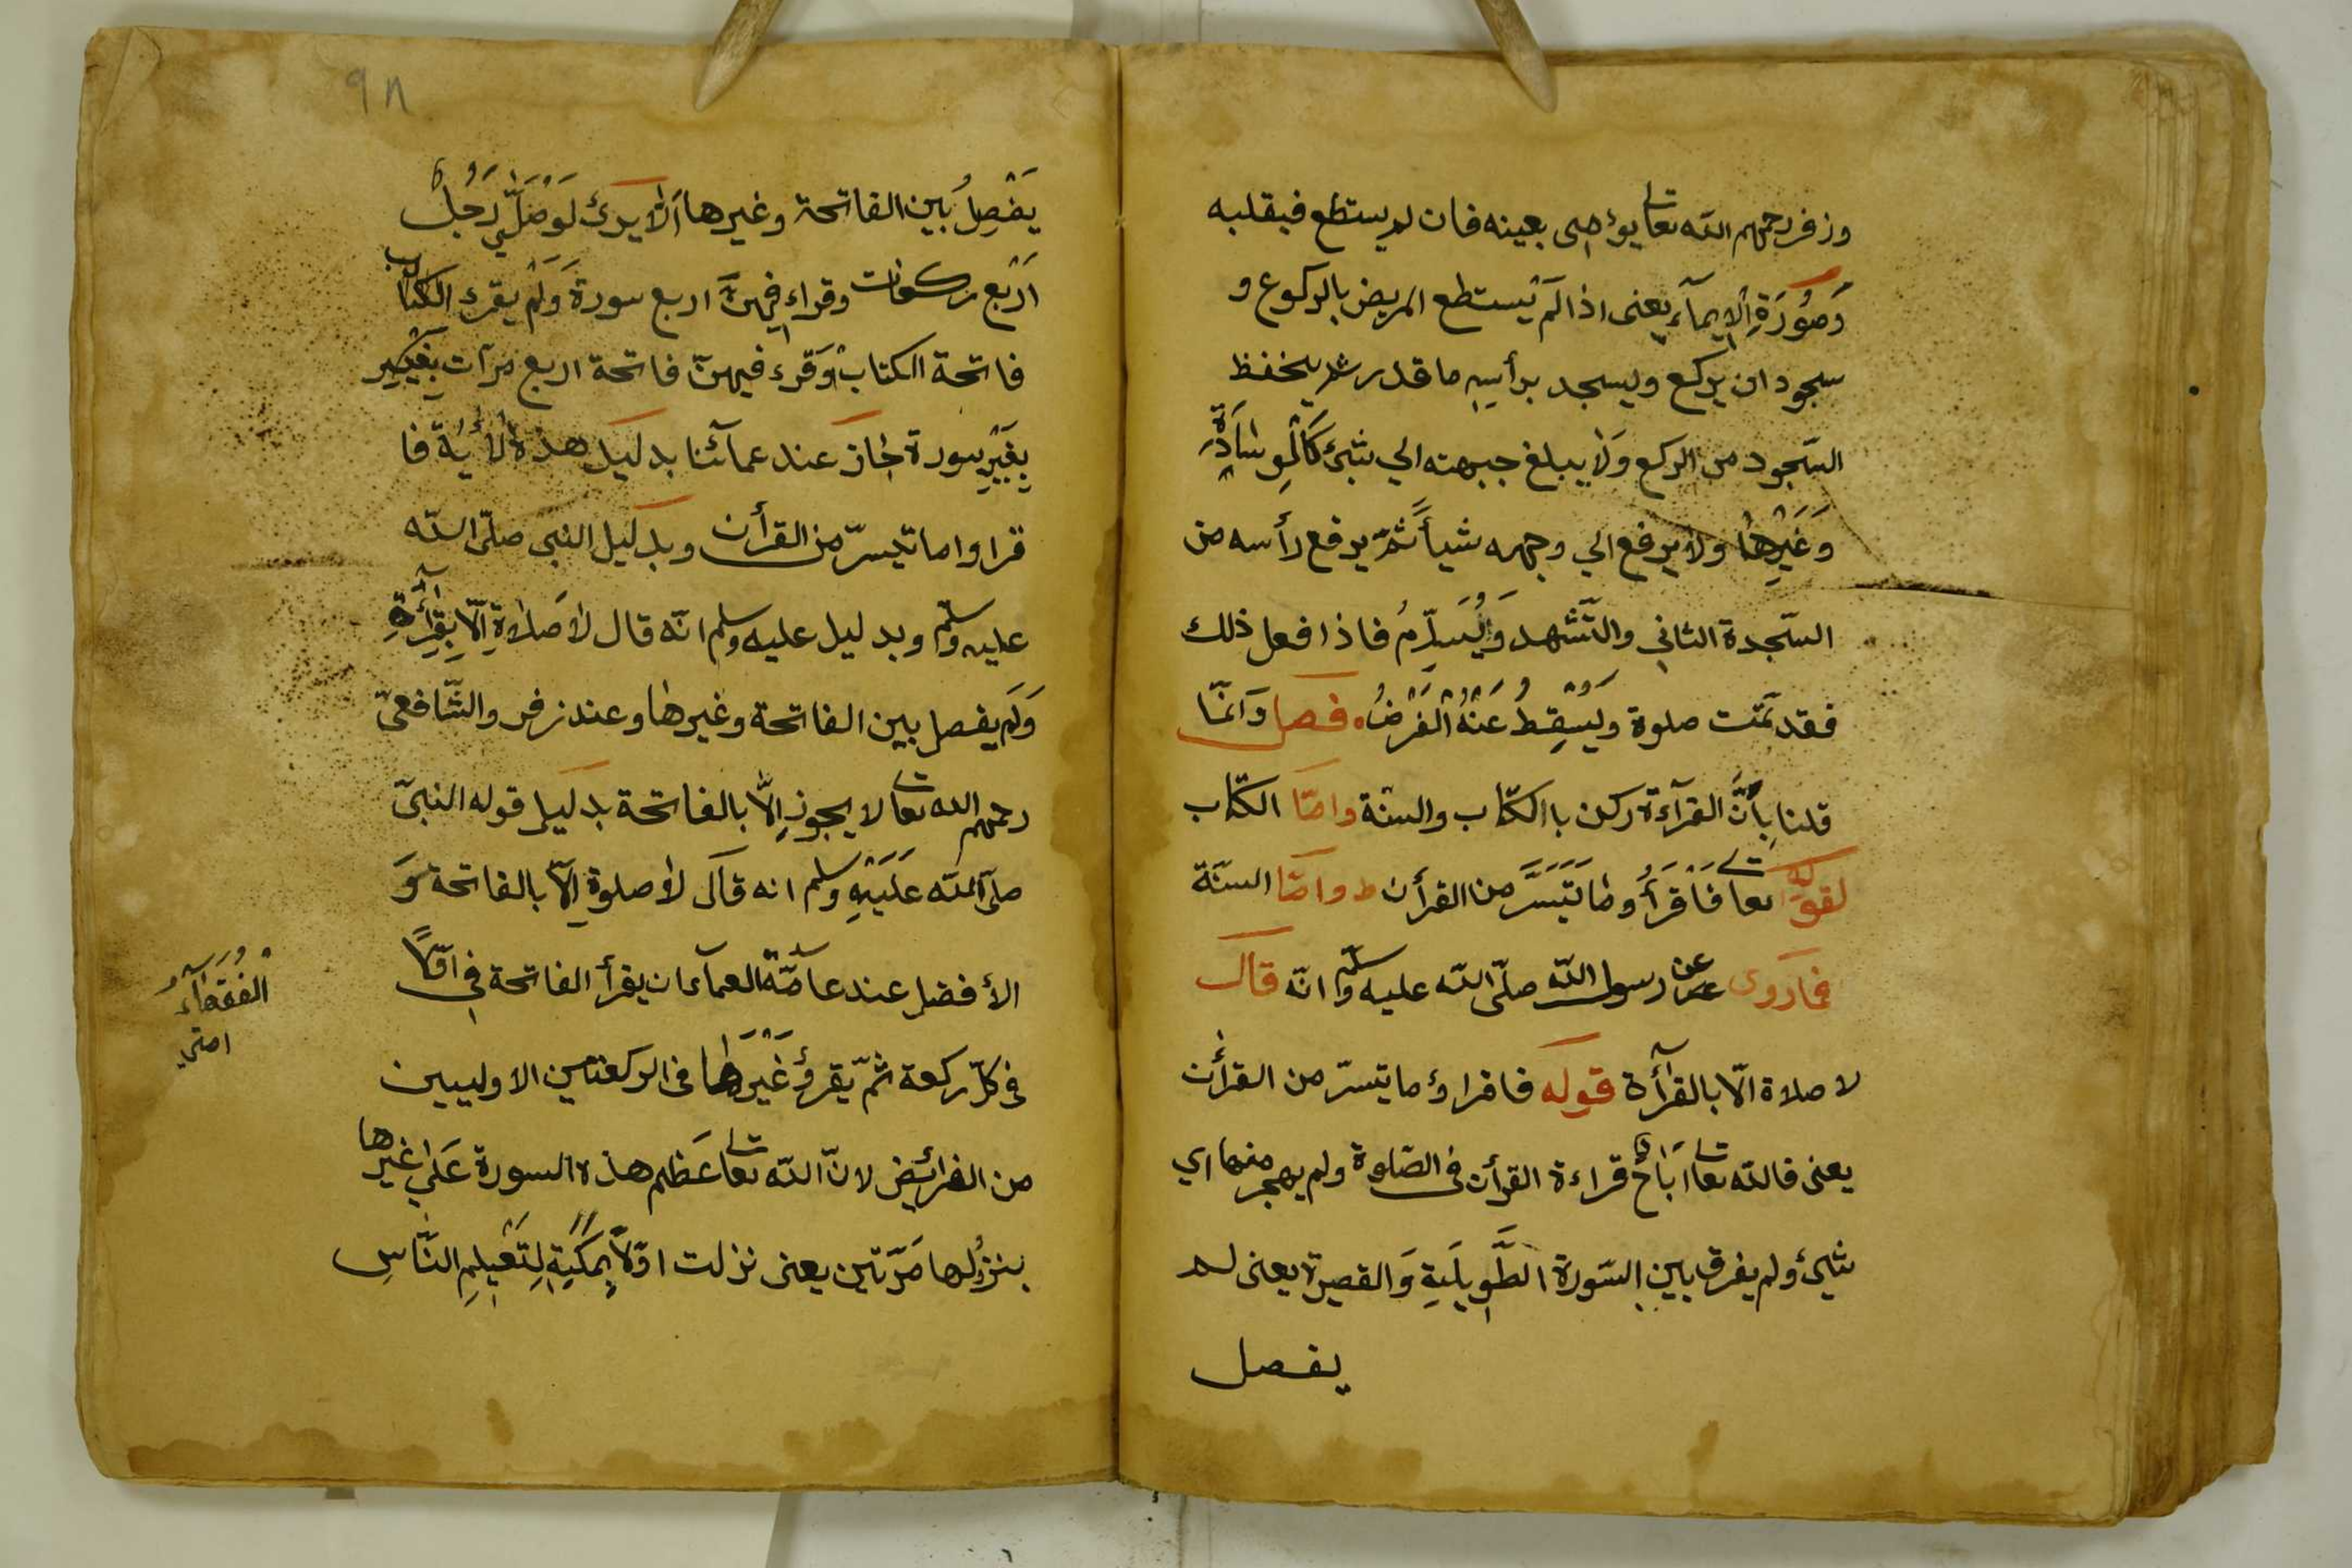 وزفر رحمهم الله تعالى يؤاحى بعينه فان لم يستطع فبقلبه
وَصُوْرَةِ الْإيمآء يعنى اذا لَمْ يَستطع المريض بالركوع و
سجود ان يركع ويسجد برأسِهِ ما قدر ثم يخفظ
السّجود من الركع وَلا يبلغ جبهته الي شئ كَالْمِوسَادَةِ
وَغَيْرِهَا ولا يرفع الي وجهه شيأً ثمّ يرفع رأسه من
السّجدة الثاني والتّشهد وَيُسَلِّمُ فاذا فعل ذلك
فقد تمّت صلوة ويَسْقِطُ عَنْهُ الْفَرْضُ ۰ فصل وَانّما
قلنا بِأَنَّ القرآءة ركن باالكتاب والسنّة وامّا الكتاب
لقوله تعالى فَاقْرَأُ وما تَيَسَّرَ من القرأن ط وامّا السنّة
فمَا روى عن رسول الله صلّى الله عليه وسلّم انّه قال
لا صلاة الّا بالقرآءة قوله فاقراؤ ما تيسرّ من القرأن
يعنى فالله تعالى ابَاحَ قراءة القرأن فى الصّلوة ولم يهجر منها اي
شئ ولم يفرق بين السّورة الطَّوِيلَيةِ وَالقصيرة يعنى لم
يفصل
٩٨
يَفْصِلُ بين الفاتحة وغيرها اَلَا يرىَ لَوْ صَلّي رَجُلٌ
اَرْبع ركعات وقراء فِيهنَّ اربع سورة وَلَمْ يقرء الكتاب
فاتحة الكتاب وَقرء فيهنّ فاتحة اربع مرّات بِغَيْرِ
بِغَيْرِ سورة جَازَ عند عمآئنا بدليل هذه الأيَة فا
قراوا ما تيسرّ من القرأن وبدليل النبى صلّى الله
عليه وسلّم وبدليل عليه وسلم انّه قال لا صَلَاةِ الّا بِقِرآئَةِ
وَلَم يفصل بين الفاتحة وغيرها وعند زفر والشّافعىّ
رحمهم الله تعالى لا يجوز إِلَّا بالفاتحة بدليل قوله النبىّ
صلّى الله عَلَيْهِ وسلم انه قَالَ لا صلوة اِلّا بالفاتحة وَ
الأفضل عند عامّة العمآء ان يقرأ الفاتحة فى اوّلاً
فى كلّ ركعة ثمّ يقرؤ غَيْرَهَا فى الركعتين الاولييين
من الفرائيض لانّ الله تعالى عَظم هذه السورة عَلي غيرها
بنزولها مَرّتين يعنى نزلت اوّلاً بِمَكّيّةِ لِتَعْيلِمِ النَّاسِ
الْفُقَهَآءُ